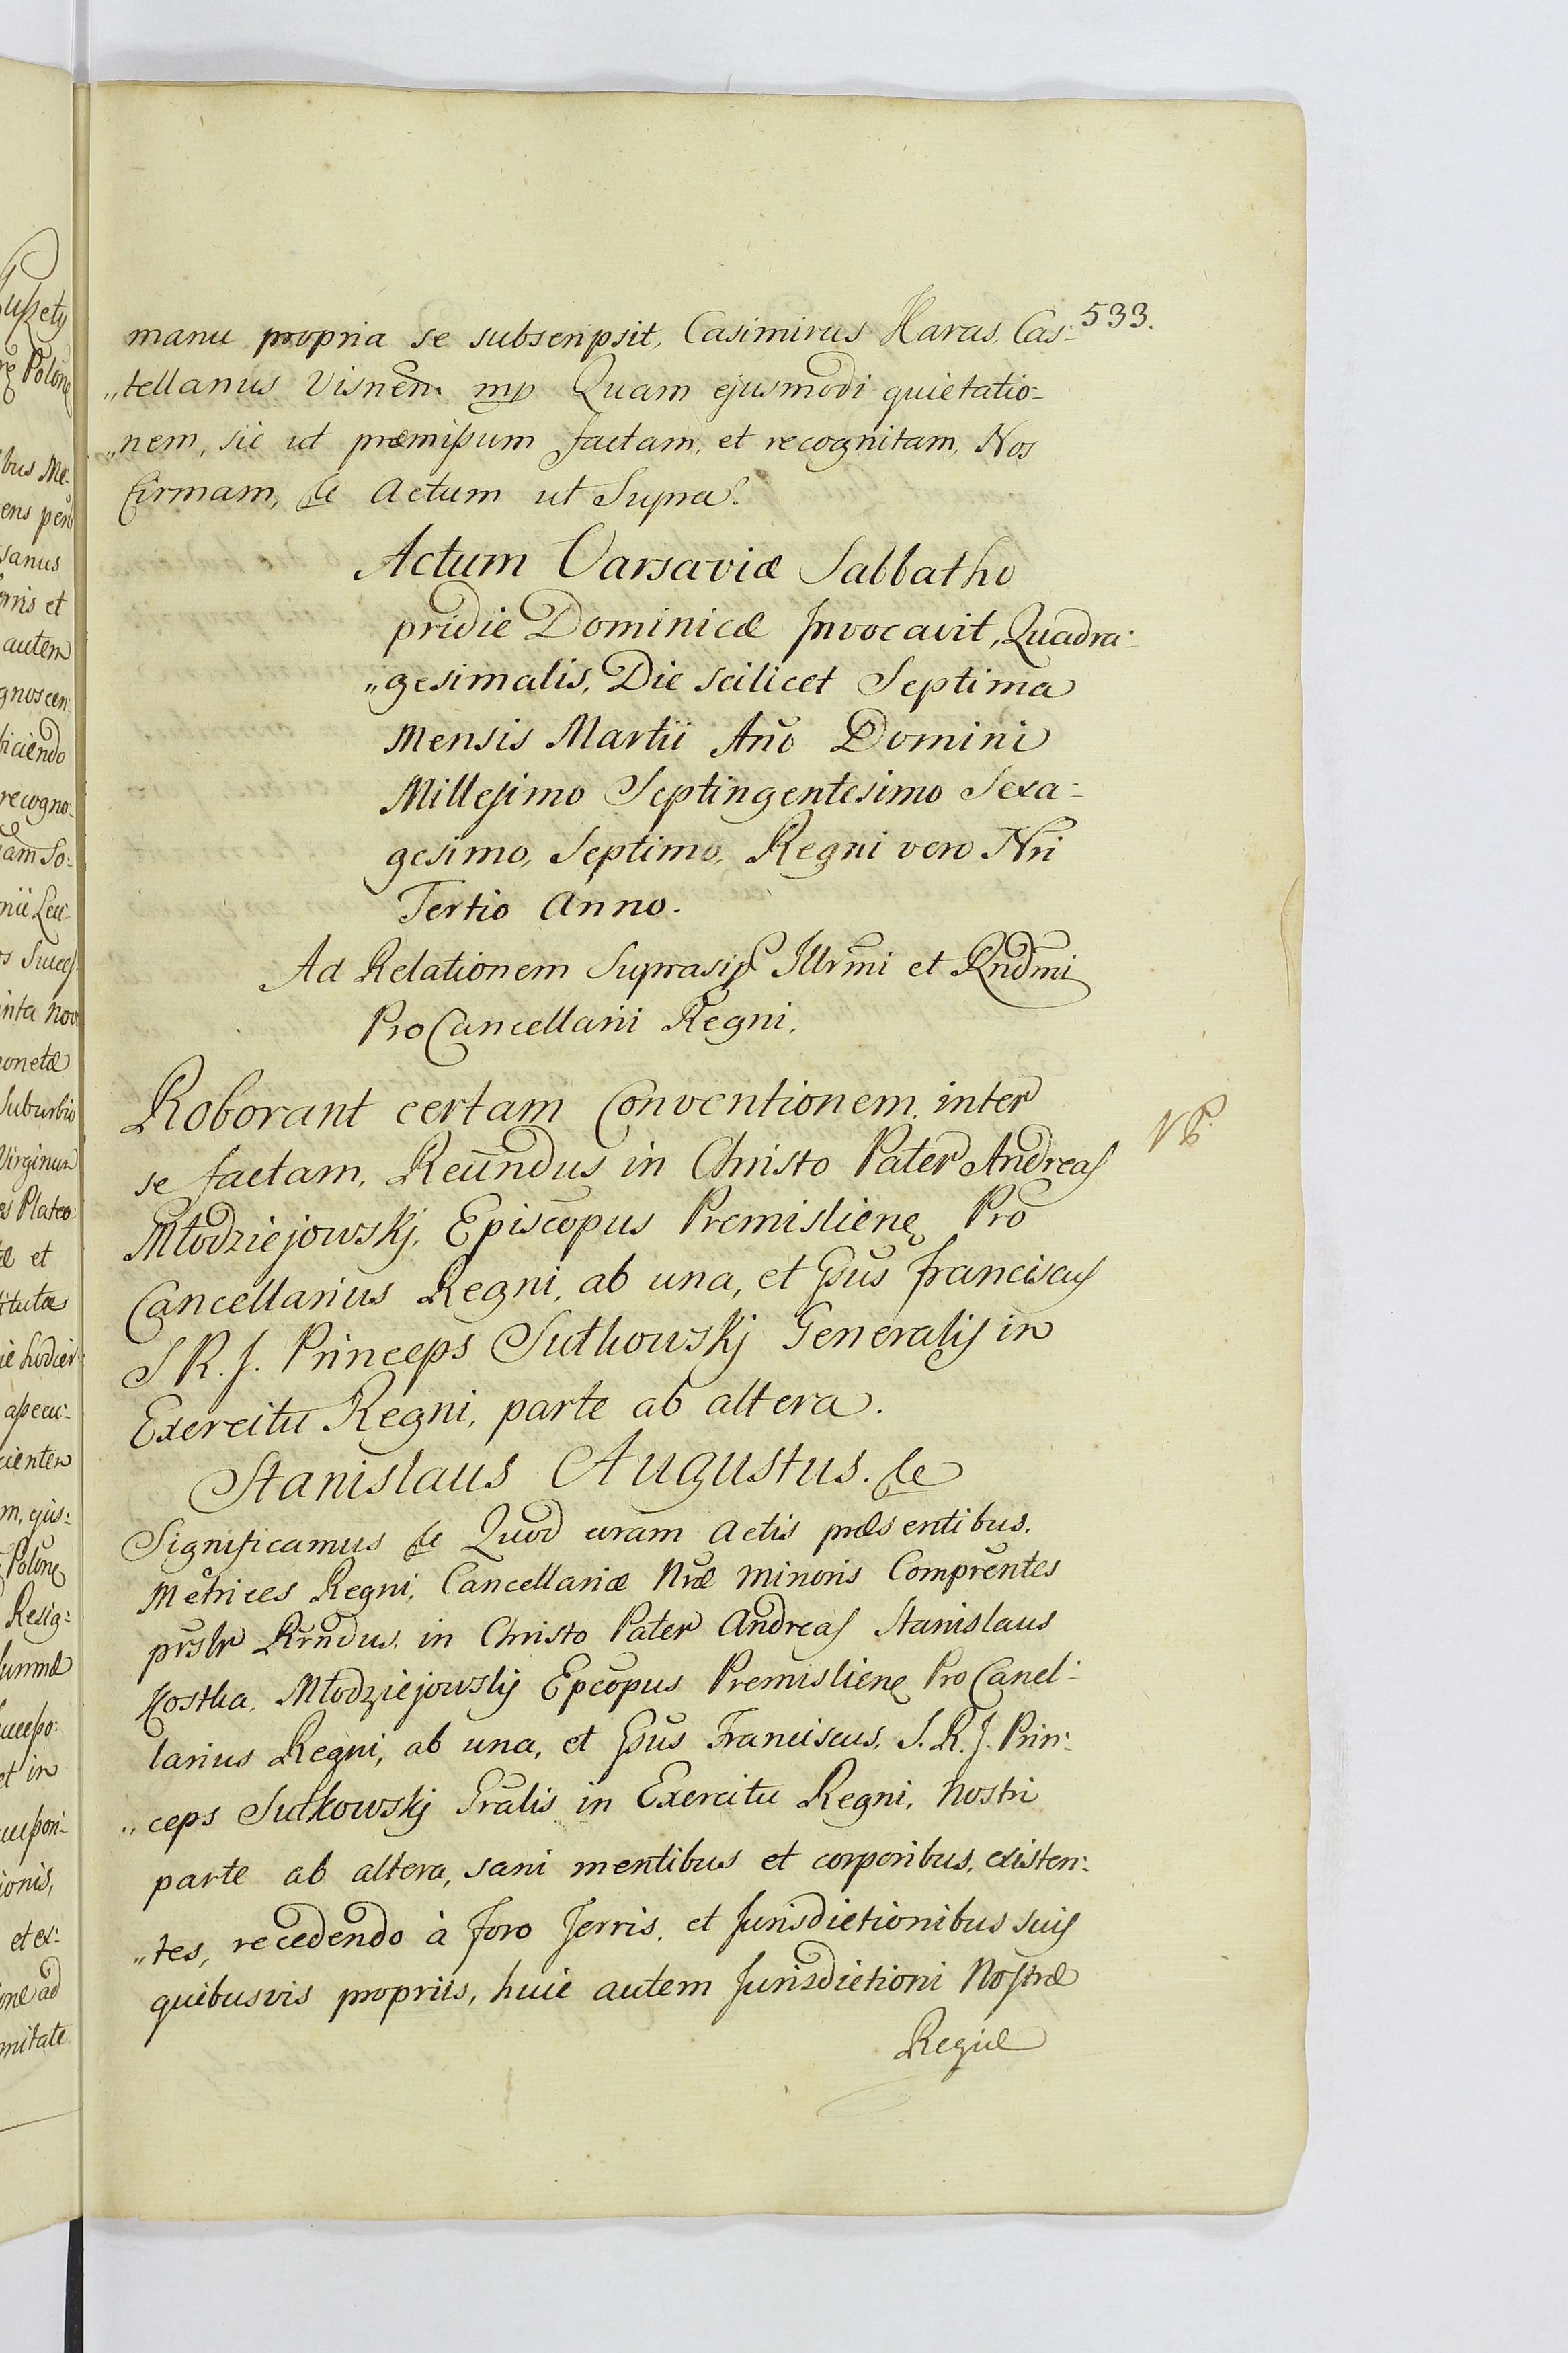 533.
manu propria se subscripsit, Casimirus Karas, Cas-
„tellanus Visnẽn mp Quam ejusmodi quietatio-
„nem, sic ut præmißum factam, et recognitam, Nos
firmam, &c Actum ut Supra.
Actum Varsaviæ Sabbatho
pridie Dominicæ Invocavit, Quadra-
„gesimalis, Die scilicet Septima
Mensis Martii Año Domini
Millesimo Septingentesimo Sexa-
gesimo, Septimo, Regni vero Nri
Tertio Anno.
Ad Relationem Suprasc Illrmi et Rndmi
ProCancellarii Regni.
Roborant certam Conventionem inter
se factam, Reundus in Christo Pater Andreas
Młodziejowskj, Episcopus Premisliens Pro
Cancellarius Regni, ab una, et Gsus Franciscus
S R. J. Princeps Sułkowskj Generalis in
Exercitu Regni, parte ab altera.
NB.
Stanislaus Augustus. &c
Significamus &c Quod coram Actis præsentibus.
Metrices Regni, Cancellariæ Nræ minoris Comprentes
prslr Rrndus, in Christo Pater Andreas Stanislaus
Kostka, Młodziejowskj Epcopus Premisliens ProCancel-
larius Regni, ab una, et Gsus Franciscus, S. R. J. Prin-
„ceps Sułkowskj Gralis in Exercitu Regni, Nostri
parte ab altera, sani mentibus et corporibus, existen-
„tes, recedendo à Foro Terris, et Jurisdictionibus suis
quibusvis propriis, huic autem Jurisdictioni Nostræ
Regiæ